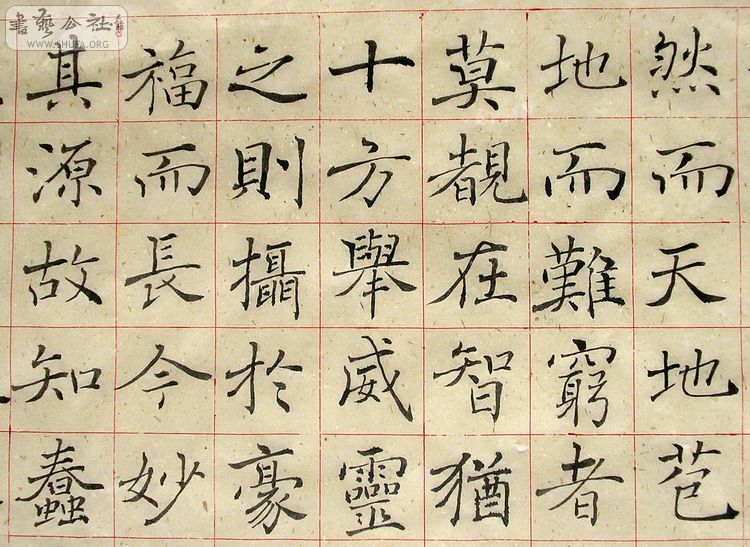 然而天地苞
地而難窮者
莫覩在智猶
十方舉威靈
之則攝於豪
福而長今妙
其源故知蠢
書藝公社
WWW.SHUFA.ORG